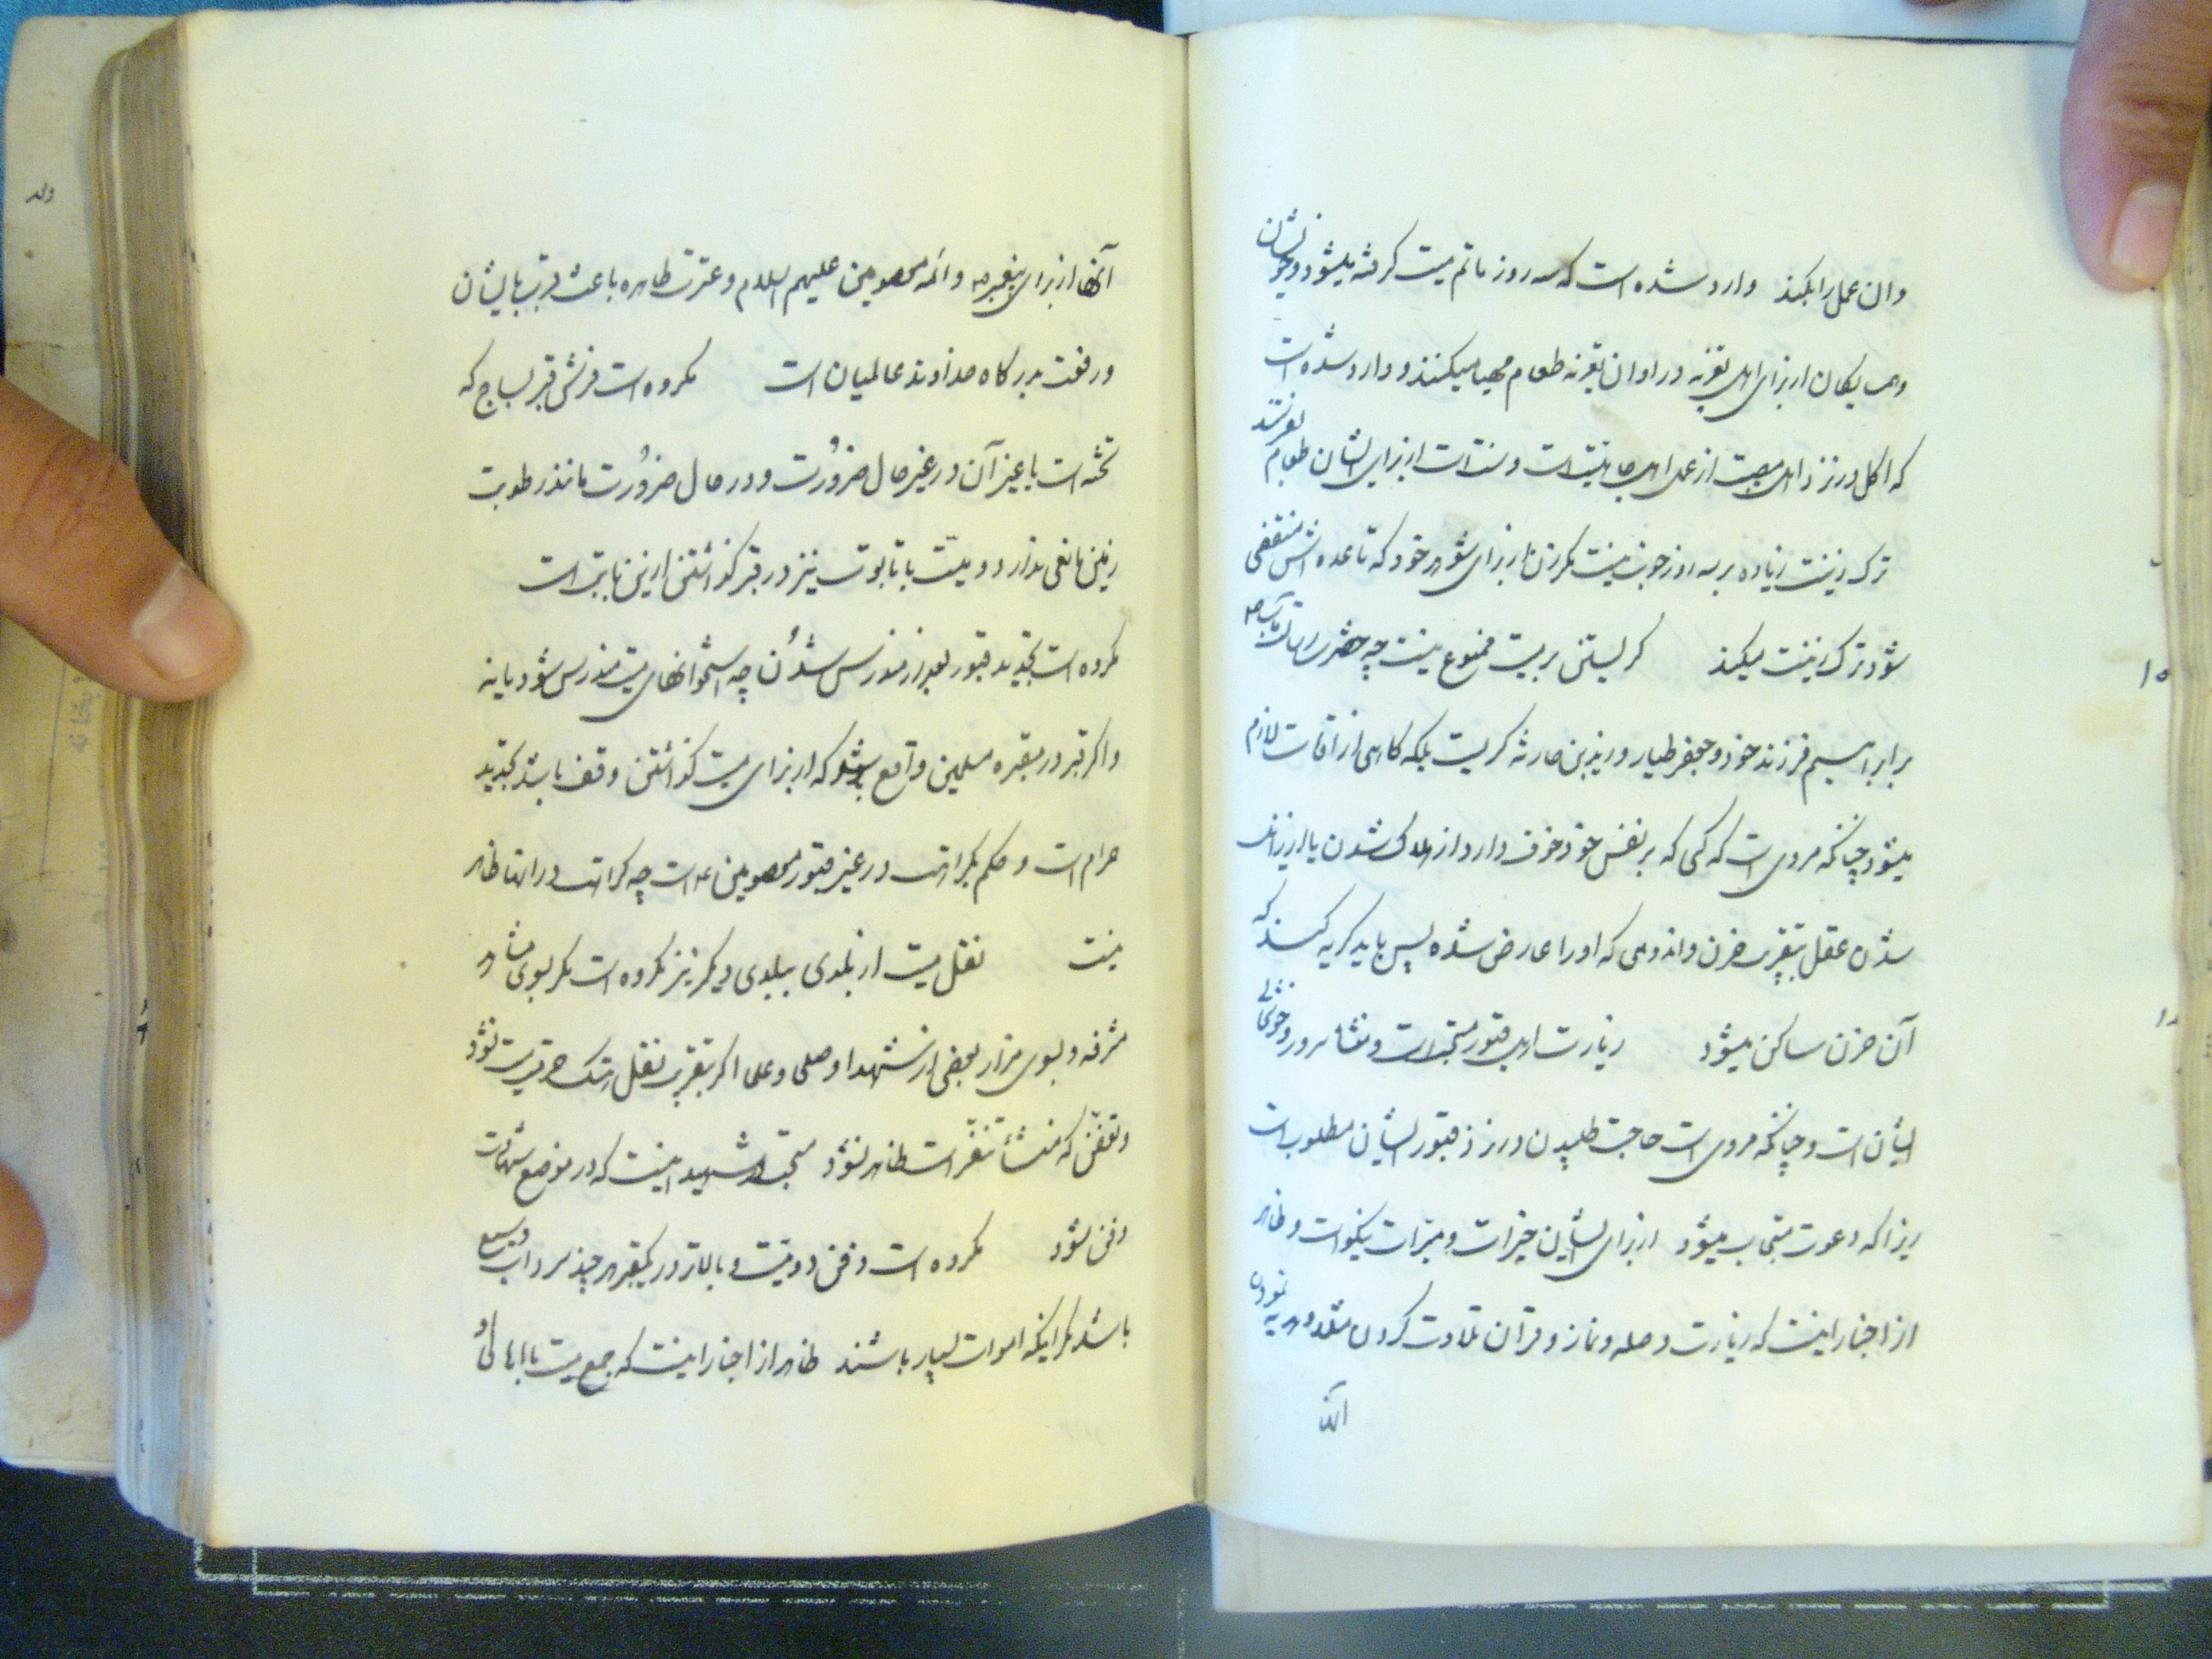 وان عمل را بکند وارد شده است که سه روز ماتم میت گرفته میشود و خویشان
و همسایگان از برای اهل تعزیه در اوان تعزیه طعام مهیا میکنند و وارد شده است
که اکل در نزد اهل مصیبت از عمل اهل جاهلیت است و سنت است از برای ایشان طعام بفرستند
ترک زینت زیاده بر سه روز خوب نیست مگر زن از برای شوهر خود که تا عده اش منقضی
شود ترک زینت میکند گریستن بر میت ممنوع نیست چه حضرت رسالت مآب ص
بر ابراهیم فرزند خود و جعفر طیار و زید بن حارثه گریست بلکه گاهی از اوقات لازم
میشود چنانکه مروی است که کسی که بر نفس خود خوف دارد از هلاک شدن یا از زایل
شدن عقل بتقریب حزن و اندوهی که او را عارض شده پس باید گریه کند که
آن حزن ساکن میشود زیارت اهل قبور مستحب است و منشأ سرور و خوشحالی
ایشان است و چنانکه مروی است حاجت طلبیدن در نزد قبور ایشان مطلوب است
زیرا که دعوت مستجاب میشود از برای ایشان خیرات و مبرات نیکو است و ظاهر
از اخبار اینست که زیارت و صله و نماز و قرآن تلاوت کردن و هدیه نمودن
آنها
آنها از برای پیغمبر ص و ائمه معصومین علیهم السلام و عترت طاهره باعث قرب بایشان
و رفعت بدرگاه خداوند عالمیان است مکروه است فرش قبر بساج که
تخته است یا بغیر آن در غیر حال ضرورت و در حال ضرورت مانند رطوبت
زمین مانعی ندارد و میت با تابوت نیز در قبر گذاشتن ازین بابت است
مکروه است تجدید قبور بعد از مندرس شدن چه استخوانهای میت مندرس شود یا نه
و اگر قبر در مقبره مسلمین واقع شود که از برای میت گذاشتن وقف باشد تجدید
حرام است و حکم بکراهت در غیر قبور معصومین ع است چه کراهت در آنها ظاهر
نیست نقل میت از بلدی ببلدی دیگر نیز مکروه است مگر بسوی مشاهد
مشرفه و بسوی مزار بعضی از شهدا و صلحا و علما اگر بتقریب نقل هتک حرمت میت نشود
و تعفنی که منشأ تنفر است ظاهر نشود مستحب در شهید اینست که در موضع شهادت
دفن شود مکروه است دفن دو میت و بالاتر در یکقبر هر چند سرداب وسیع
باشد مگر اینکه اموات بسیار باشند ظاهر از اخبار اینست که جمع میت با اهالی او